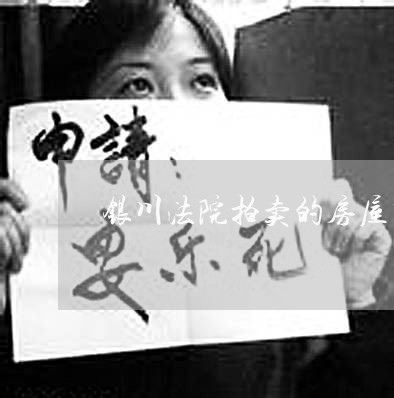 申請：
银川法院拍卖的房屋
安乐死